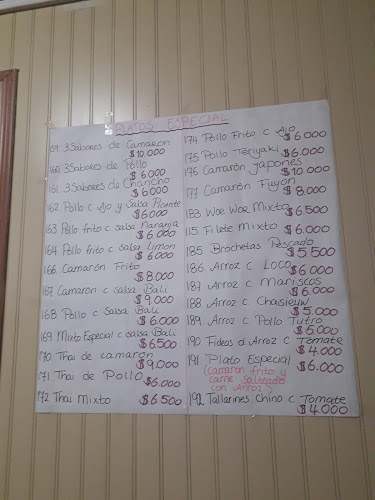 PLATOS ESPECIAL
159 3Sabores de Camaron
$10.000
160 3Sabores de Pollo
$6.000
161 3Sabores de Chancho
$6.000
162 Pollo c Ajo y Salsa Picante
$6.000
163 Pollo frito c salsa Naranja
$6.000
164 Pollo frito c salsa Limon
$6.000
166 Camarón Frito
$8.000
167 Camaron c salsa Bali
$9.000
168 Pollo c Salsa Bali
$6.000
169 Mixto Especial c salsa Bali
$6.500
170 Thai de camaron
$9.000
171 Thai de Pollo
$6.000
172 Thai Mixto $6.500
174 Pollo Frito c Ajo
$6.000
175 Pollo Teriyaki $6.000
176 Camarón Japones
$10.000
177 Camarón Fuyon
$8.000
183 Woe Woe Mixto $6.500
115 Filete Mixto $6.000
185 Brochetas Pescado
$5.500
186 Arroz c Loco $6.000
187 Arroz c Mariscos
$6.000
188 Arroz c Chasieuw
$5.000
189 Arroz c Pollo Tutro
$5.000
190 Fideos d Arroz c Tomate
$4.000
191 Plato Especial $6.000
(camaron frito y
carne salteado
con Arroz)
192 Tallarines Chino c Tomate
$4.000